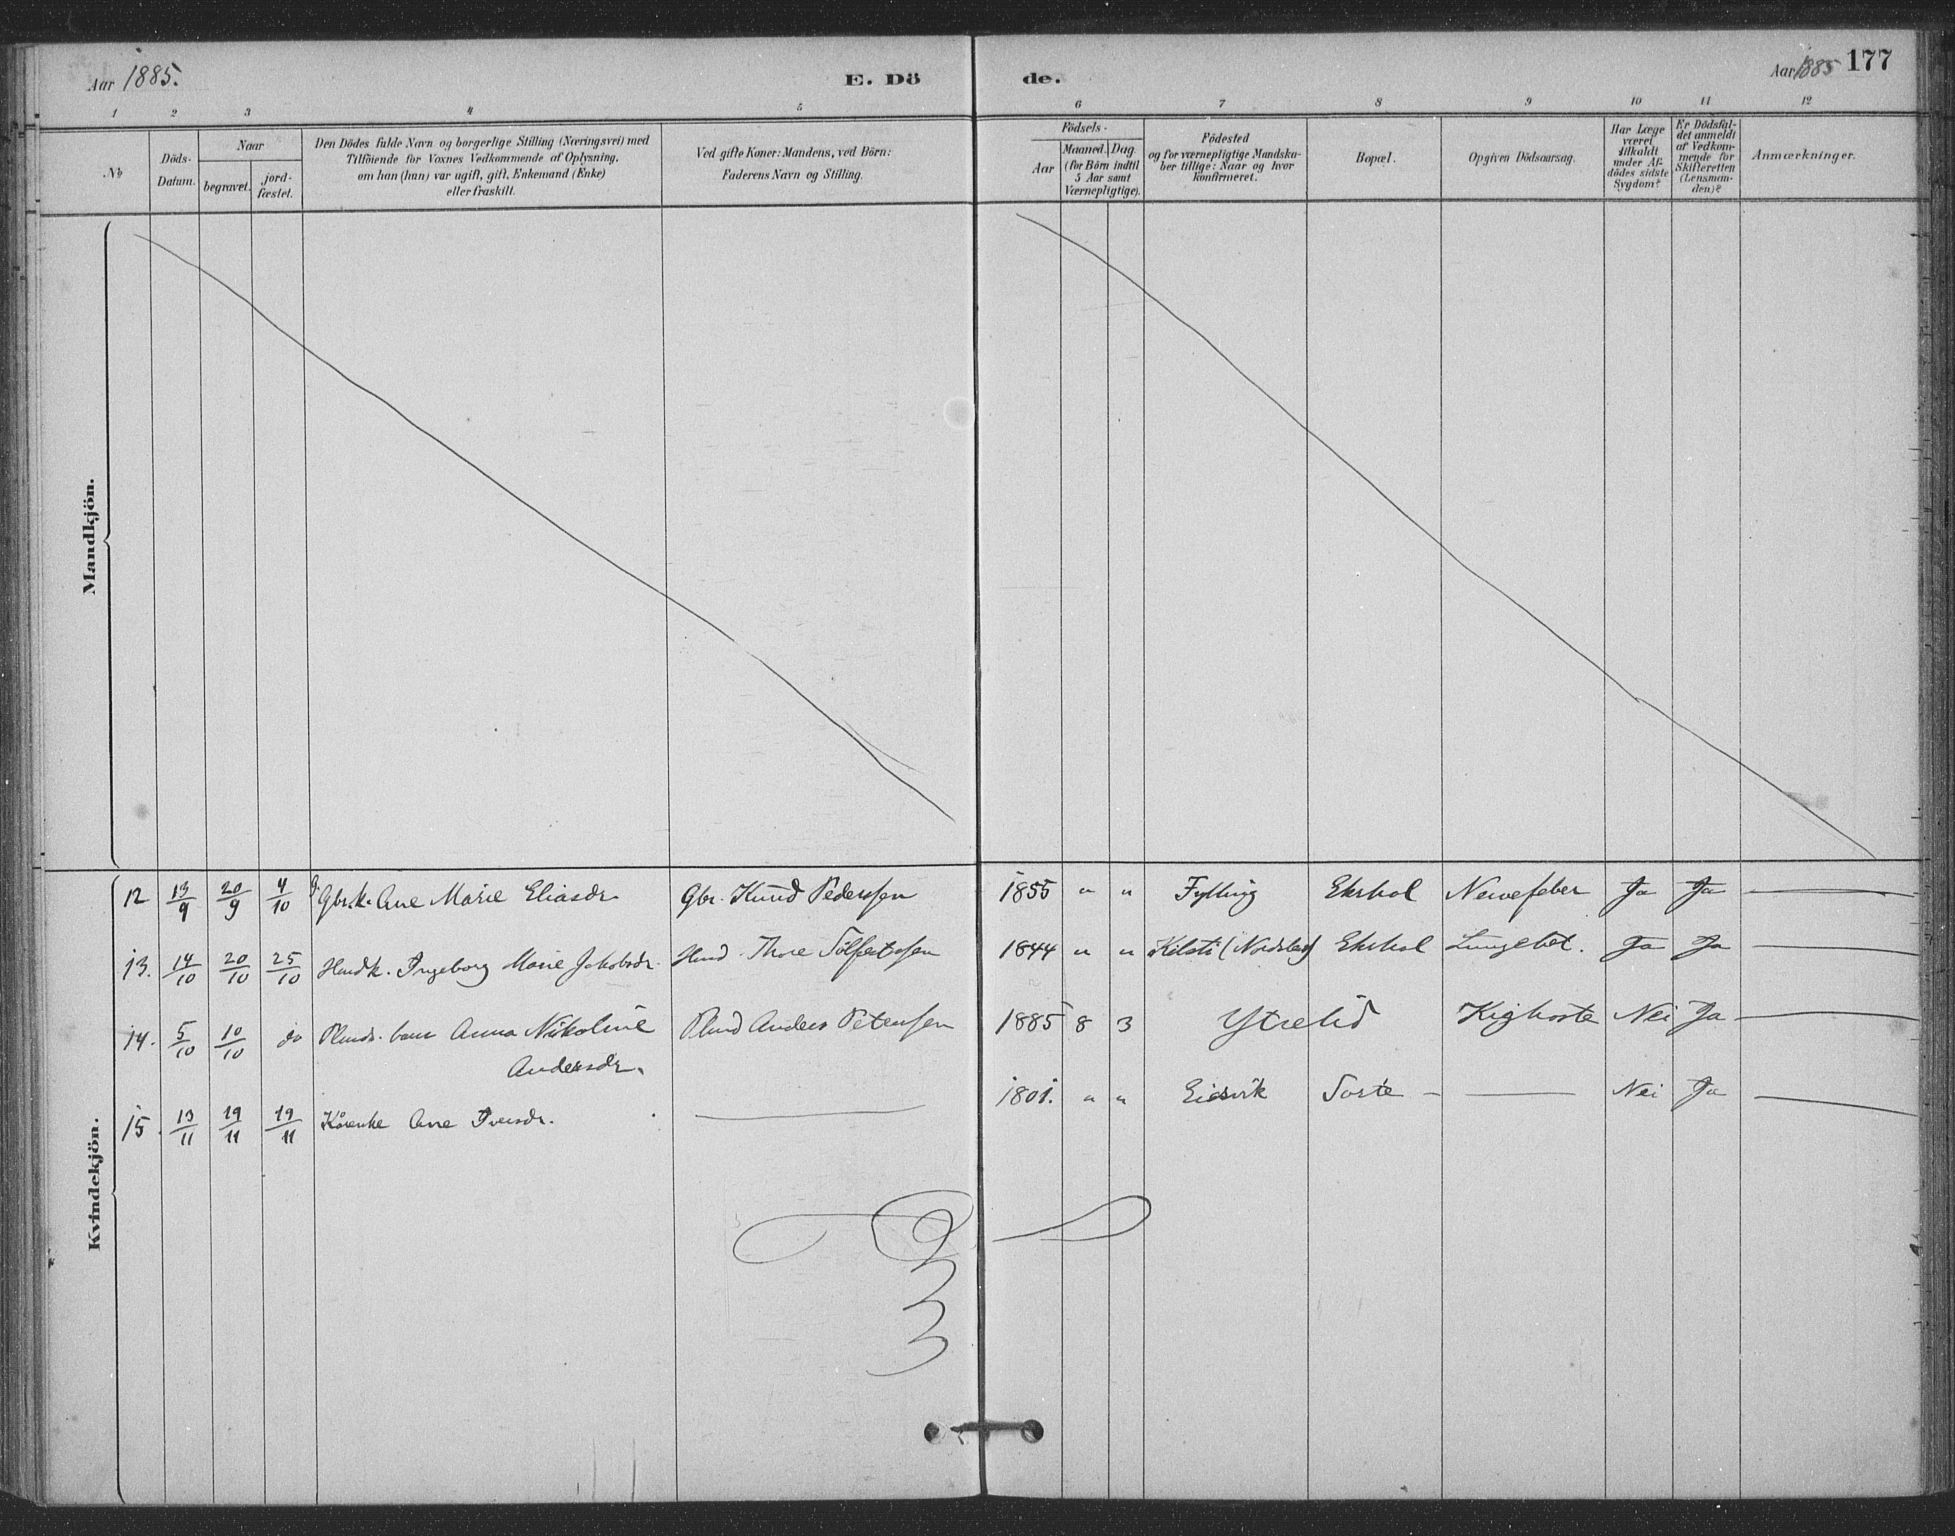 Aar 1885. E. Dö de. Aar 1885 177
1 2 3 4 5 6 7 8 9 10 11 12
№
Döds-
Datum.
Naar
begravet.
jord-
fæstet.
Den Dödes fulde Navn og borgerlige Stilling (Næringsvei) med
Tilföiende for Voxnes Vedkommende af Oplysning,
om han (hun) var ugift, gift, Enkemand (Enke)
eller fraskilt.
Ved gifte Koner: Mandens, ved Börn:
Faderens Navn og Stilling.
Födsels-
Aar
Maaned. Dag.
(for Börn indtil
5 Aar samt
Værnepligtige).
Födested
og for værnepligtige Mandska-
ber tillige: Naar og hvor
konfirmeret.
Bopæl.
Opgiven Dödsaarsag.
Har Læge
været
tilkaldt
under Af-
dödes sidste
Sygdom?
Er Dödsfal-
det anmeldt
af Vedkom-
mende for
Skifteretten
(Lensman-
den)?
Anmærkninger.
Mandkjön.
Kvindekjön.
12 13/9 20/9 4/10 Gbr.k. Ane Marie Eliasdr Gbr. Knud Pederssen 1855 " " Fylling Ekrhol Nervefeber Ja Ja
13. 14/10 20/10 25/10 Husdk. Ingeborg Marie Jakobsdr. Husd. Thore Sölfestssen 1844 " " Kilsti (Nordstad) Ekrhol Lungebet. Ja Ja
14. 5/10 10/10 do Plmds. barn Anna Nikoline Plmd Anders Peterssen 1885 8 3 Ytrelid Kighoste Nei Ja
Andersdr.
15. 13/11 19/11 19/11 Kårenke Ane Iversdr. 1801. " " Eidsvik Sorte Nei Ja